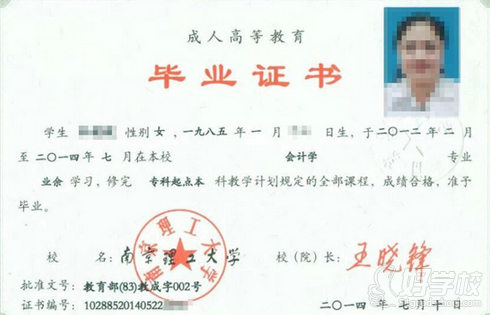 成人高等教育
毕业证书
学生 性别 女，一九八五年一月 日生，于二〇一二年二月
至二〇一四年七月在本校 会计学 专业
业余 学习，修完 专科起点本 科教学计划规定的全部课程，成绩合格，准予
毕业。
校 名： 南京理工大学 校（院）长： 王晓锋
南京理工大学
批准文号： 教育部(83)教成字002号
证书编号： 10288520140522
二〇一四年 七月十日
好学校